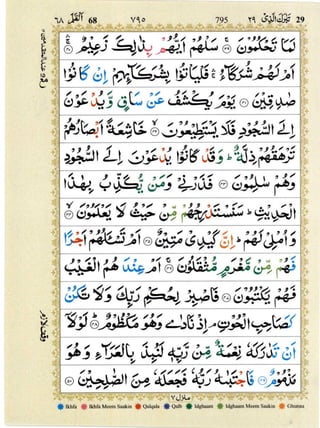 29 تَبٰرَكَ الَّذِیْ ٢٩ 795 ٧٩٥ 68 اَلْقَلَم ٦٨
لَمَا تَحْكُمُوْنَ ﴿٣٩﴾ سَلْهُمْ اَيُّهُمْ بِذٰلِكَ زَعِيْمٌ ﴿٤٠﴾
اَمْ لَهُمْ شُرَكَآءُ ۚ فَلْيَاْتُوْا بِشُرَكَآئِهِمْ اِنْ كَانُوْا
صٰدِقِيْنَ ﴿٤١﴾ يَوْمَ يُكْشَفُ عَنْ سَاقٍ وَّ يُدْعَوْنَ
اِلَى السُّجُوْدِ فَلَا يَسْتَطِيْعُوْنَ ﴿٤٢﴾ خَاشِعَةً اَبْصَارُهُمْ
تَرْهَقُهُمْ ذِلَّةٌ ؕ وَ قَدْ كَانُوْا يُدْعَوْنَ اِلَى السُّجُوْدِ
وَ هُمْ سٰلِمُوْنَ ﴿٤٣﴾ فَذَرْنِيْ وَ مَنْ يُّكَذِّبُ بِهٰذَا
الْحَدِيْثِ ؕ سَنَسْتَدْرِجُهُمْ مِّنْ حَيْثُ لَا يَعْلَمُوْنَ ﴿٤٤﴾
وَ اُمْلِيْ لَهُمْ ؕ اِنَّ كَيْدِيْ مَتِيْنٌ ﴿٤٥﴾ اَمْ تَسْـَٔلُهُمْ اَجْرًا
فَهُمْ مِّنْ مَّغْرَمٍ مُّثْقَلُوْنَ ﴿٤٦﴾ اَمْ عِنْدَهُمُ الْغَيْبُ
فَهُمْ يَكْتُبُوْنَ ﴿٤٧﴾ فَاصْبِرْ لِحُكْمِ رَبِّكَ وَ لَا تَكُنْ
كَصَاحِبِ الْحُوْتِ ۘ اِذْ نَادٰى وَ هُوَ مَكْظُوْمٌ ﴿٤٨﴾ لَوْلَاۤ
اَنْ تَدٰرَكَهٗ نِعْمَةٌ مِّنْ رَّبِّهٖ لَنُبِذَ بِالْعَرَآءِ وَ هُوَ
مَذْمُوْمٌ ﴿٤٩﴾ فَاجْتَبٰىهُ رَبُّهٗ فَجَعَلَهٗ مِنَ الصّٰلِحِيْنَ ﴿٥٠﴾
منزل ٧
Ikhfa Ikhfa Meem Saakin Qalqala Qalb Idghaam Idghaam Meem Saakin Ghunna